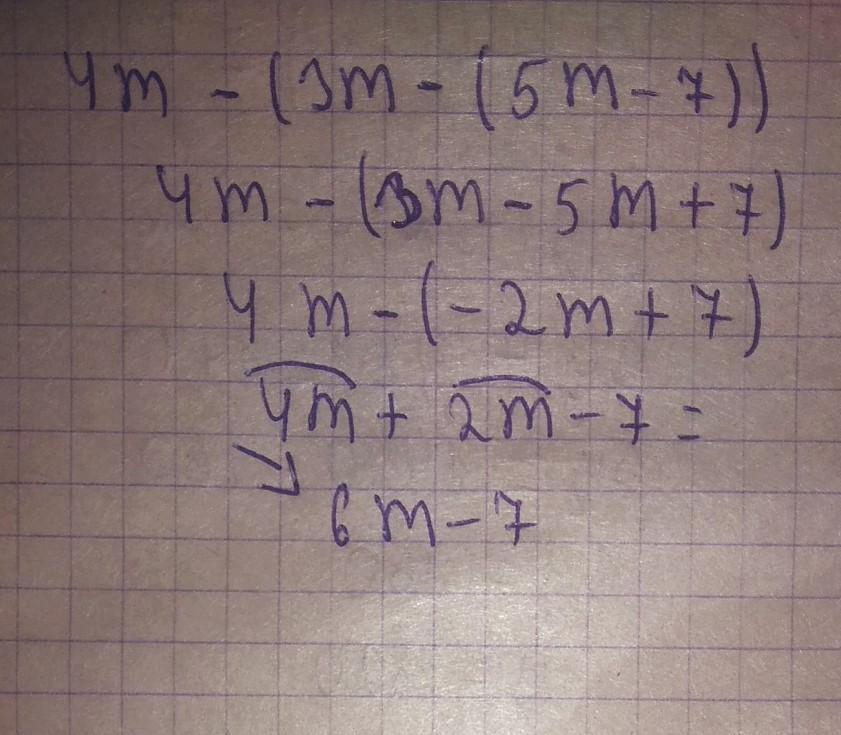 4m - (3m - (5m - 7))
4m - (3m - 5m + 7)
4m - (-2m + 7)
4m + 2m - 7 =
6m - 7